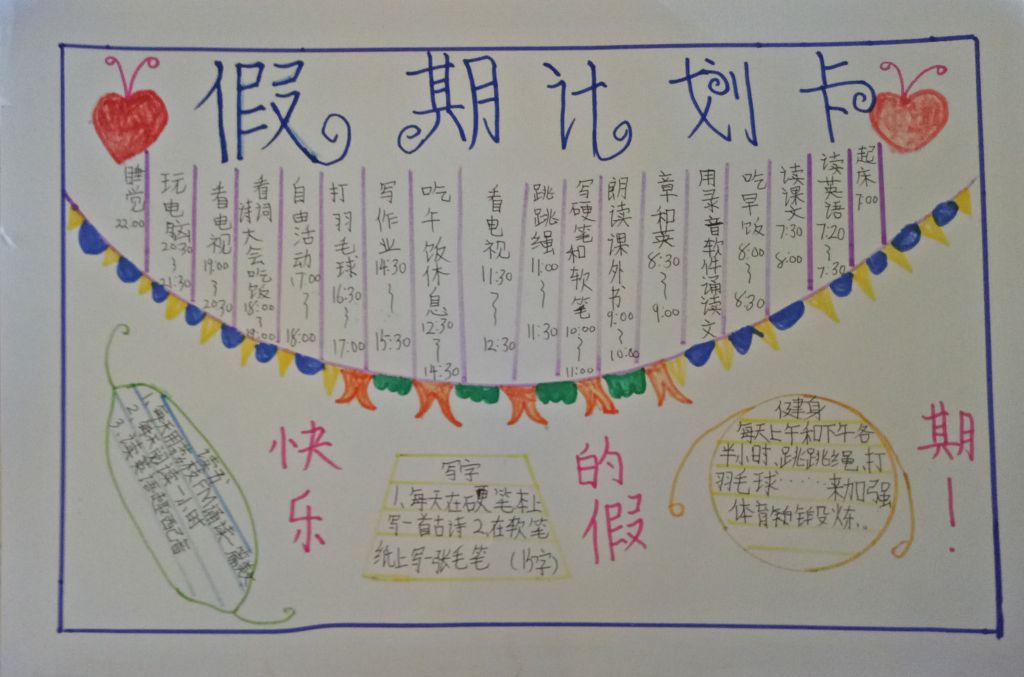 假期计划卡
起床 7:00
读英语 7:20~7:30
读课文 7:30 8:00
吃早饭 8:00~8:30
用录音软件诵读文
章和英 8:30~9:00
朗读课外书 9:00~10:00
写硬笔和软笔 10:00~11:00
跳跳绳 11:00~11:30
看电视 11:30~12:30
吃午饭休息 12:30~14:30
写作业 14:30~15:30
打羽毛球 16:30~17:00
自由活动 17:00~18:00
看诗词大会吃饭 18:00~19:00
看电视 19:00~20:30
玩电脑 20:30~21:30
睡觉 22:00
快乐的假期!
写字
1、每天在硬笔本上
写一首古诗 2、在软笔
纸上写一张毛笔 (15字)
健身
每天上午和下午各
半小时、跳跳绳、打
羽毛球……来加强
体育锻炼..